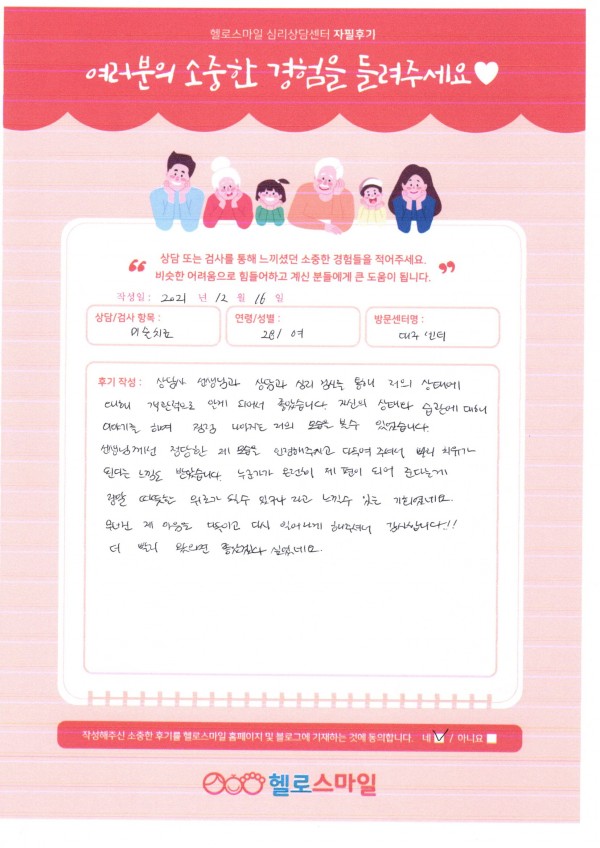 헬로스마일 심리상담센터 자필후기
여러분의 소중한 경험을 들려주세요
상담 또는 검사를 통해 느끼셨던 소중한 경험들을 적어주세요.
비슷한 어려움으로 힘들어하고 계신 분들에게 큰 도움이 됩니다.
작성일 : 2021 년 12 월 16 일
상담/검사 항목 : 미술치료
연령/성별 : 28 / 여
방문센터명 : 대구 센터
후기 작성 : 상담사 선생님과 상담과 심리 검사를 통해 저의 상태에
대해 객관적으로 알게 되어서 좋았습니다. 자신의 상태와 습관에 대해
이야기를 하며 점점 나아지는 저의 모습을 볼수 있었습니다.
선생님께선 정당한 제 모습을 인정해주시고 다독여 주셔서 빠니 치유가
된다는 느낌도 받았습니다. 누군가가 온전히 제 편이 되어 준다는게
정말 따뜻한 위로가 될수 있구나 라고 느낄수 있는 기회였네요.
무너진 제 마음을 다독이고 다시 일어나게 해주셔서 감사합니다!!
더 빨리 왔으면 좋았겠다 싶었네요.
작성해주신 소중한 후기를 헬로스마일 홈페이지 및 블로그에 기재하는 것에 동의합니다. 네 / 아니요
헬로스마일